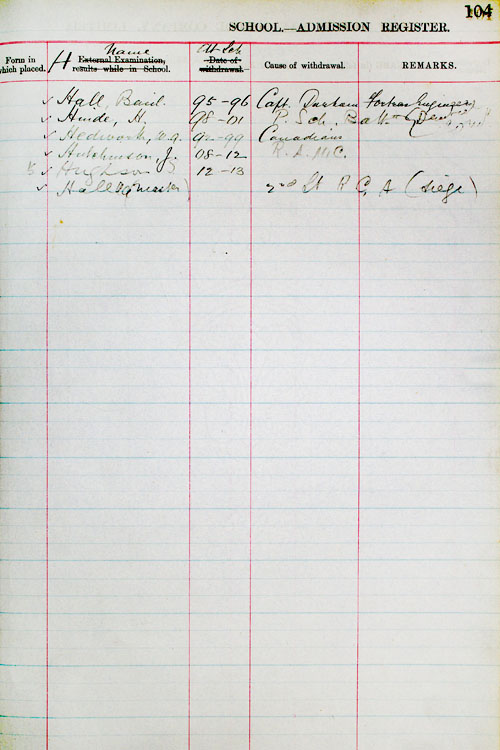 104
SCHOOL.—ADMISSION REGISTER.
Form in which placed.
H
Name
External Examination, results while in School.
At Sch
Date of withdrawal.
Cause of withdrawal.
REMARKS.
✓ Hall, Basil. 95-96 Capt. Durham Fortress Engineers
✓ Hinde, H. 98-01 P. Sch. Batt
✓ Hedworth, W.G. 92-99 Canadians
✓ Hutchinson, J. 08-12 R.A.M.C.
Hughson J 12-13
✓ Hall 2nd Lt R G A (Siege)